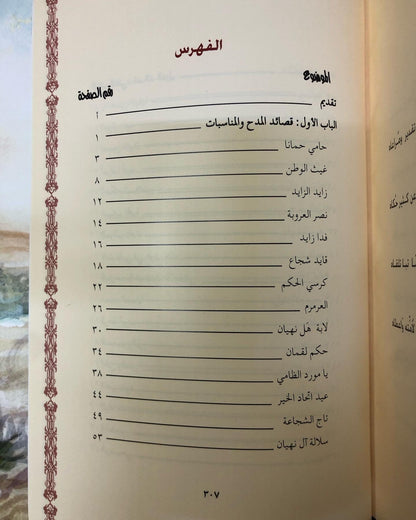 الفهرس
الموضوع رقم الصفحة
تقديم أ
الباب الأول: قصائد المدح والمناسبات ١
حامي حمانا ٣
غيث الوطن ٨
زايد الزايد ١٢
نصر العروبة ١٤
فدا زايد ١٦
قايد شجاع ١٨
كرسي الحكم ٢٢
العرمرم ٢٦
لابة هل نهيان ٣٠
حكم لقمان ٣٤
يا مورد الظامي ٣٨
عيد اتحاد الخير ٤٤
تاج الشجاعة ٤٩
سلالة آل نهيان ٥٣
٣٠٧